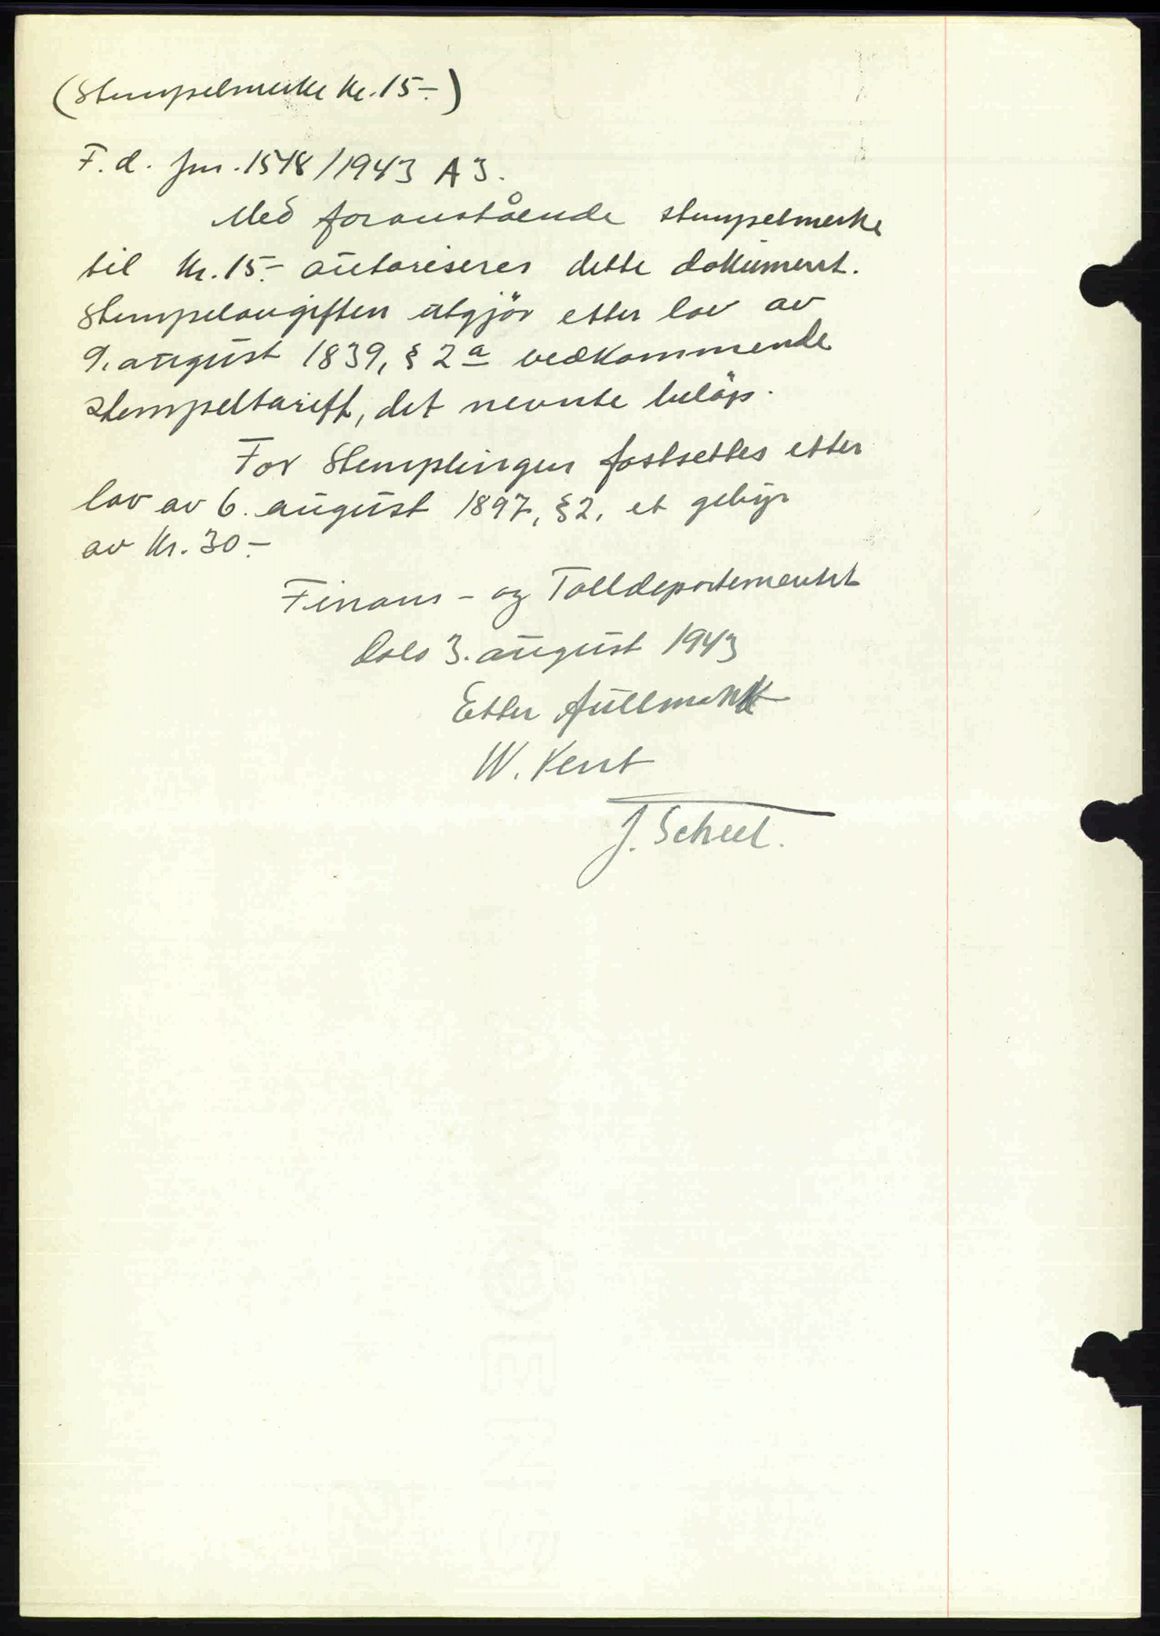 (Stempelmerke kr. 15.-)
F. d. jnr. 1548/1943 A 3.
Med foranstående stempelmerke
til kr. 15.- autoriseres dette dokument.
Stempelavgiften utgjör etter lov av
9. august 1839, § 2 a vedkommende
stempeltariff, det nevnte belöp.
For Stemplingen fastsettes etter
lov av 6. august 1897, § 2, et gebyr
av kr. 30.-
Finans- og Tolldepartementet
Oslo 3. august 1943
Etter fullmakt
W. Kent
J. Scheel.